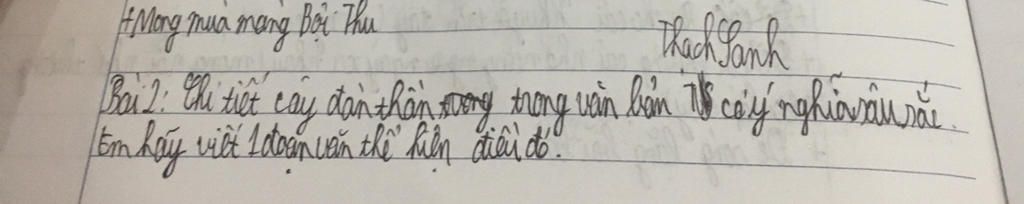 + Mong mua mang Bội Thu
Thạch Sanh
Bài 2: Chi tiết cây đàn thần trong văn bản TS có ý nghĩa sâu sắc.
Em hãy viết 1 đoạn văn thể hiện điều đó.